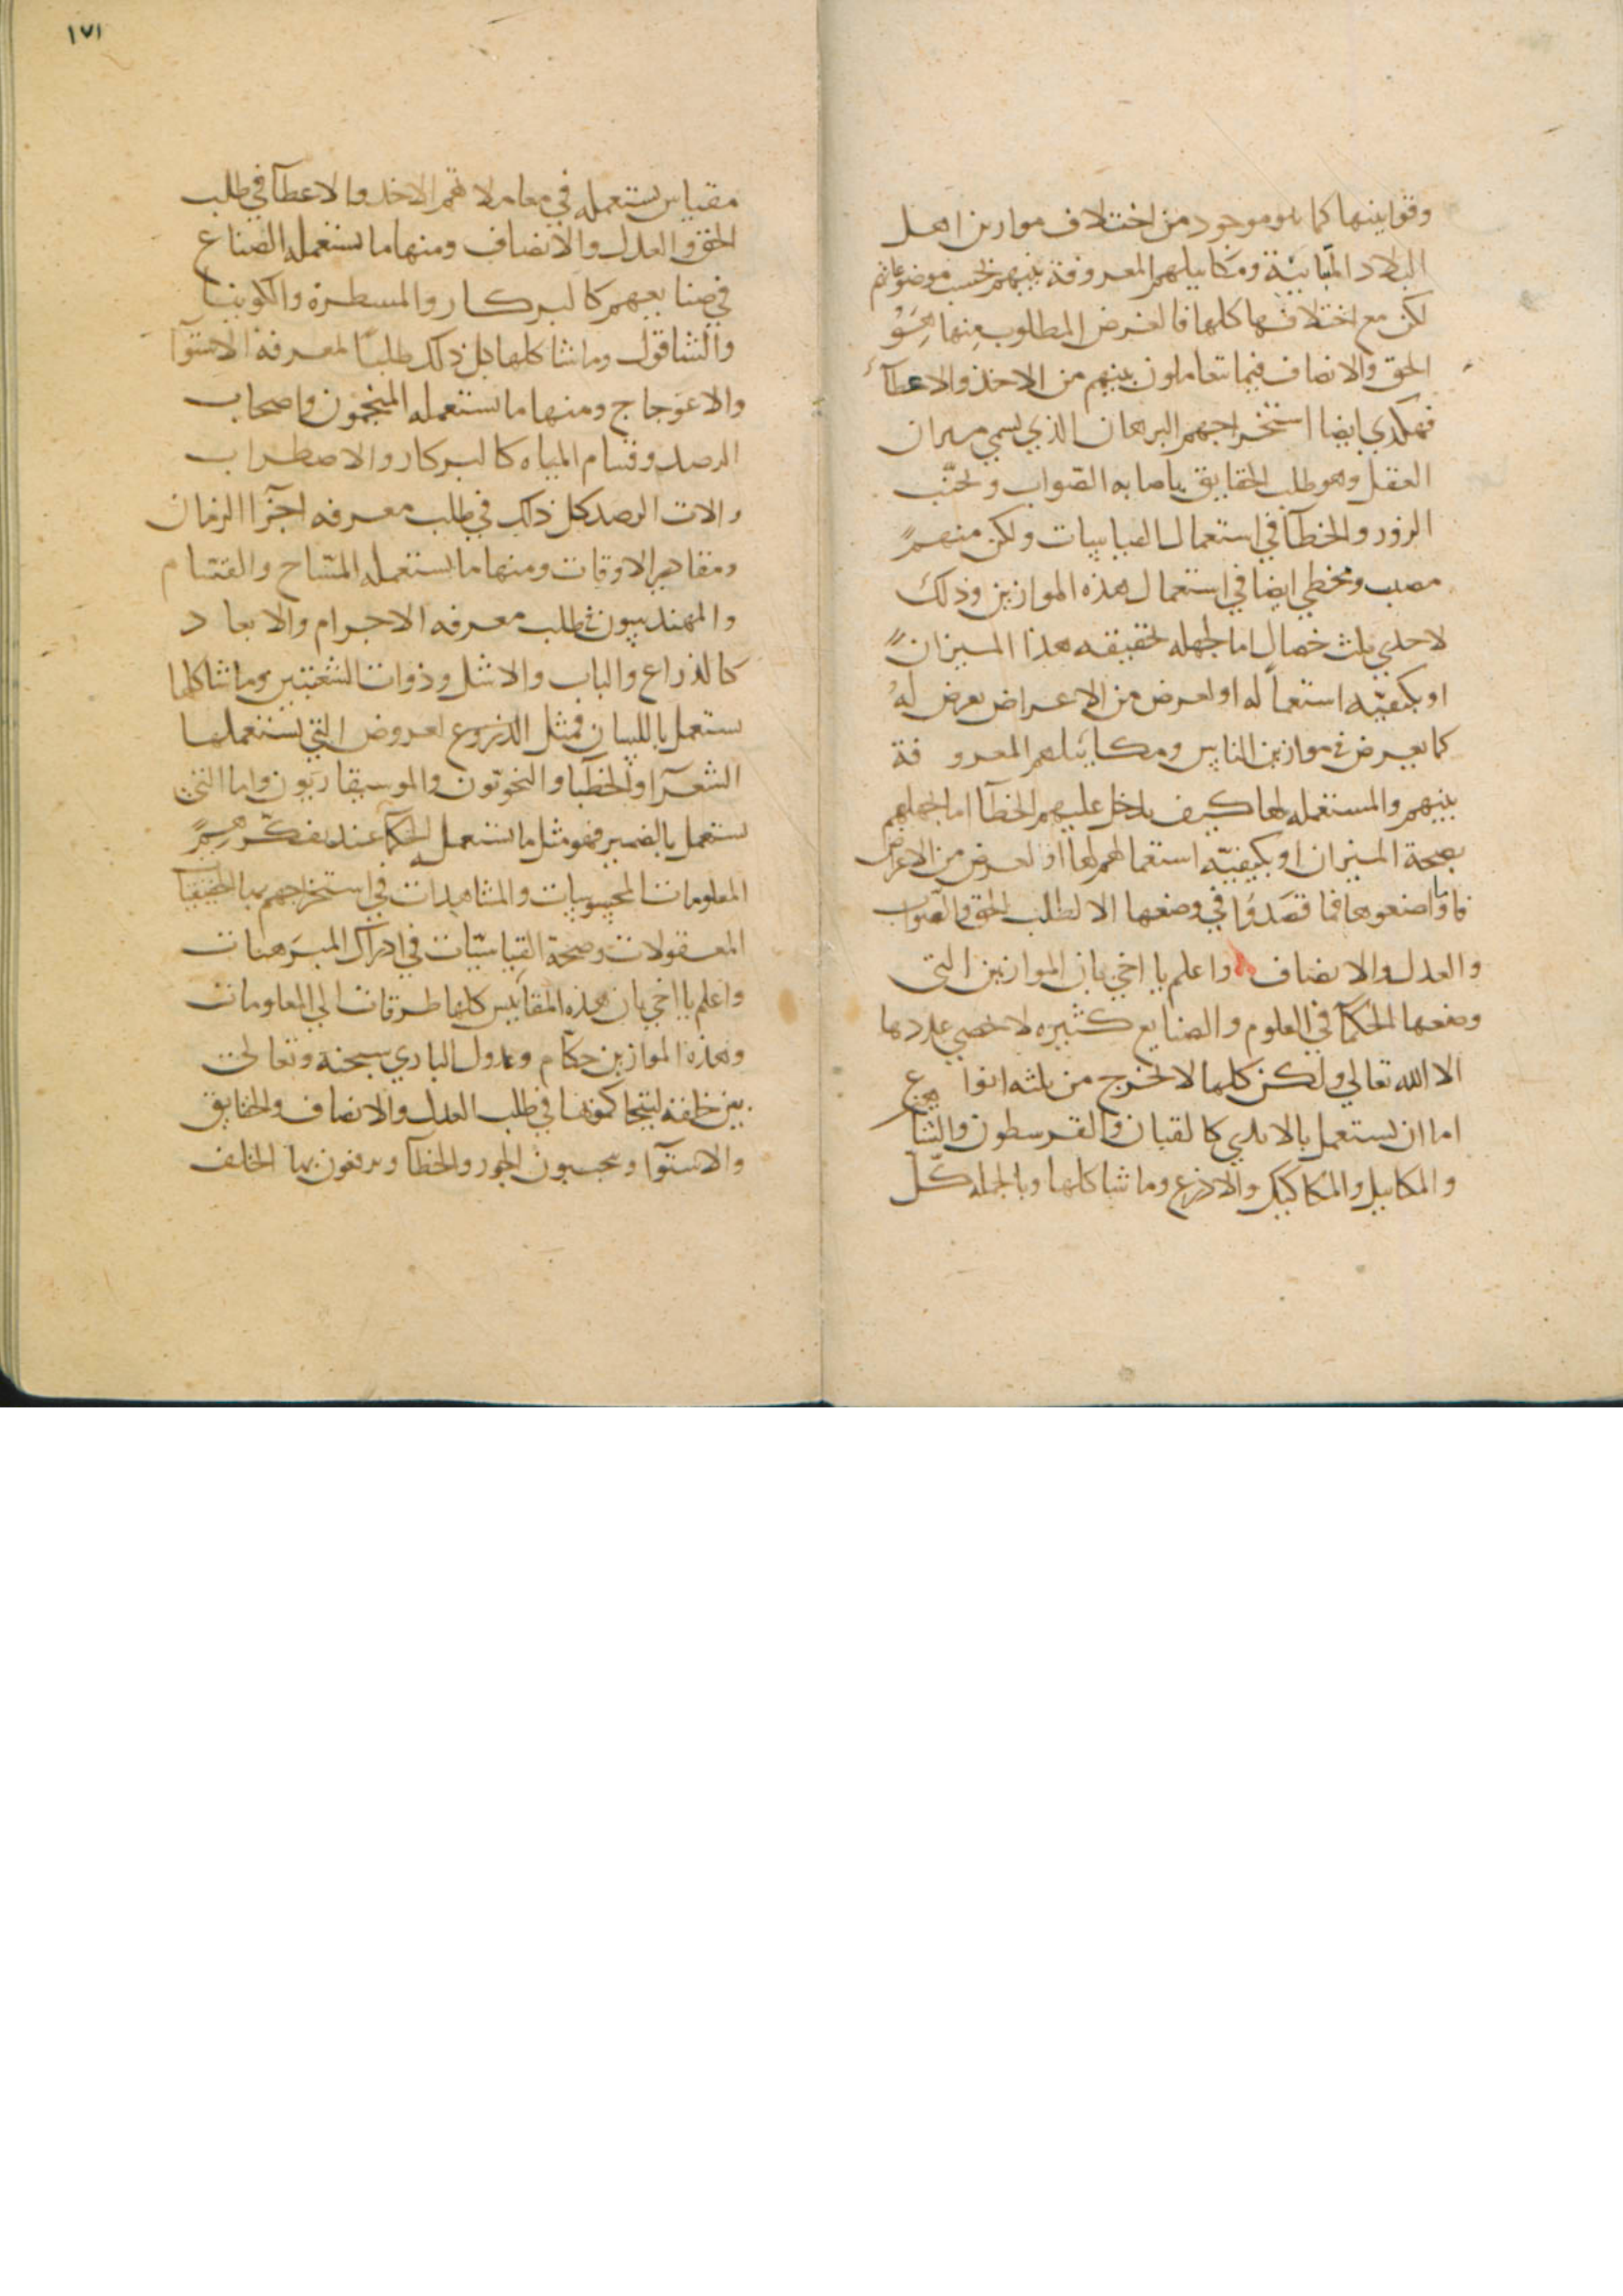 وقوانينها كما هو موجود من اختلاف موازين اهل
البلاد المتباينة ومكاييلهم المعروفة بينهم بحسب موضوعاتهم
لكن مع اختلافها كلها فالغرض المطلوب منها هو
الحق والانصاف فيما يتعاملون بينهم من الاخذ والاعطآء
فهكذي ايضا استخراجهم البرهان الذي يسمي ميزان
العقل وهو طلب الحقايق باصابه الصواب وتجنب
الزور والخطآ في استعمال القياسات ولكن منهم
مصب ومخطي ايضا في استعمال هذه الموازين وذلك
لاحدي ثلث خصال اما لجهله بحقيقه هذا الميزان
او بكيفيّه استعماله او لعرض من الاعراض يعرض له
كما يعرض في موازين الناس ومكاييلهم المعروفة
بينهم والمستعمله لها كيف يدخل عليهم الخطآ اما لجهلهم
بصحة الميزان او بكيفيّه استعمالهم لها او لعرض من الاعراض
فاما واضعوها فما قصدوا في وضعها الا لطلب الحق والصواب
والعدل والانصاف واعلم يا اخي بان الموازين التي
وضعها الحكمآ في العلوم والصنايع كثيره لا يحصي عددها
الا الله تعالي ولكن كلها لا تخرج من ثلثه انواع
اما ان يستعمل بالايدي كالقبان والقرسطون والشا
والمكاييل والمكاكيك والاذرع وما شاكلها وبالجمله كل
١٧١
مقياس يستعمله في معاملاتهم الاخذ والاعطآ في طلب
الحق والعدل والانصاف ومنها ما يستعمله الصناع
في صنايعهم كالبركار والمسطرة والكونيا
والشاقول وما شاكلها كل ذلك طلبًا لمعرفة الاستوآ
والاعوجاج ومنها ما يستعمله المنجمون واصحاب
الرصد وقسام المياه كالبركار والاصطراب
والات الرصد كل ذلك في طلب معرفه اجزآ الزمان
ومقادير الاوقات ومنها ما يستعمله المسّاح والقسّام
والمهندسون في طلب معرفه الاجرام والابعاد
كالذراع والباب والاشل وذوات الشعبتين وما شاكلها
يستعمل باللسان فمثل العروض التي يستعملها
الشعرآ والخطبا والنحويّون والموسيقاريّون واما التي
يستعمل بالضمير فهو مثل ما يستعمل الحكما عند تفكرهم
المعلومات المحسوسات والمشاهدات في استخراجهم بها الخفيات
المعقولات وصحة القياسيّات في ادراك المبرهنات
واعلم يا اخي بان هذه المقاييس كلها طرقات الي المعلومات
وهذه الموازين حكام وعدول الباري سبحنه وتعالي
بين خلقه ليتحاكموها في طلب العدل والانصاف والحقايق
والاستوآ ويجنبون الجور والخطآ ويرفعون بها الخلف